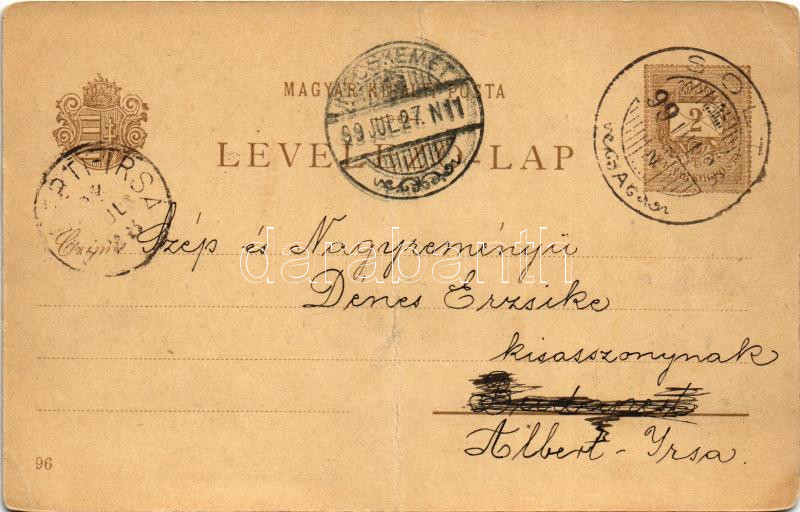 MAGYAR KIR. POSTA
LEVELEZŐ-LAP
KECSKEMÉT
99 JUL. 27. N11
SOLT
99
2
Czím
Szép és Nagyreményü
Dénes Erzsike
kisasszonynak
Budapest
Albert-Yrsa.
darabanth
96